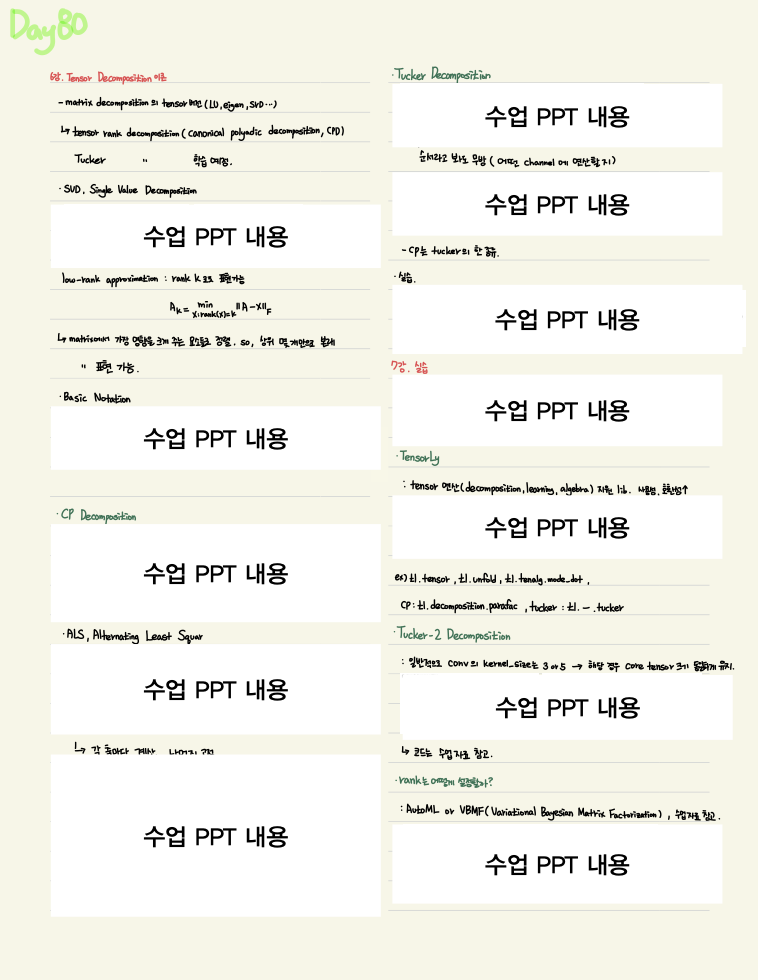 Day80
6강. Tensor Decomposition 이론
- matrix decomposition의 tensor 버전 (LU, eigen, SVD …)
↳ tensor rank decomposition (canonical polyadic decomposition, CPD)
Tucker 〃 학습 예정.
· SVD, Single Value Decomposition
수업 PPT 내용
low-rank approximation : rank k로 표현가능
A_k = min_{X:rank(X)=k} ||A-X||_F
↳ matrix에서 가장 영향을 크게 주는 요소들로 정렬. so, 상위 몇 개만으로 본래
〃 표현 가능.
· Basic Notation
수업 PPT 내용
· CP Decomposition
수업 PPT 내용
· ALS, Alternating Least Squar
수업 PPT 내용
↳ 각
수업 PPT 내용
· Tucker Decomposition
수업 PPT 내용
순서라고 봐도 무방 ( 어떤 channel에 연산할지)
수업 PPT 내용
- CP는 tucker의 한 종류.
· 실습.
수업 PPT 내용
7강. 실습
수업 PPT 내용
· TensorLy
: tensor 연산(decomposition, learning, algebra) 지원 lib. 사용성, 호환성↑
수업 PPT 내용
ex) tl.tensor, tl.unfold, tl.tenalg.mode_dot,
CP : tl.decomposition.parafac, tucker : tl. — .tucker
· Tucker-2 Decomposition
: 일반적으로 conv의 kernel_size는 3 or 5 → 해당 경우 core tensor 크기 동일하게 유지.
수업 PPT 내용
↳ 코드는 수업자료 참고.
· rank는 어떻게 설정할까?
: AutoML or VBMF(Variational Bayesian Matrix Factorization), 수업자료 참고.
수업 PPT 내용